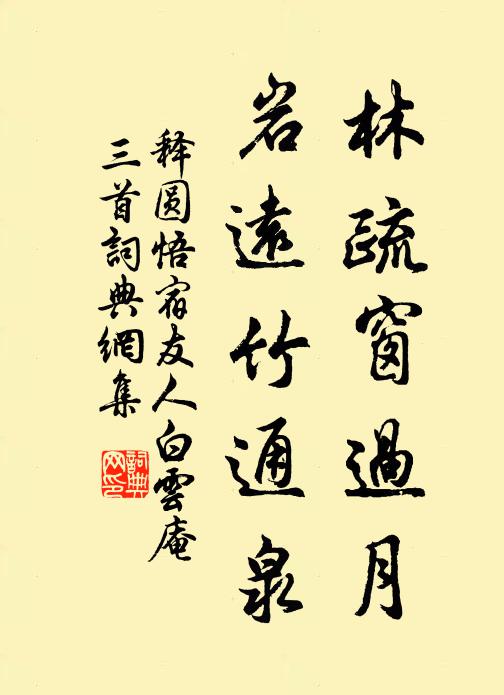 林疏窗過月
岩遠竹通泉
释圓悟宿友人白雲庵
三首詞典網集
詞典网印